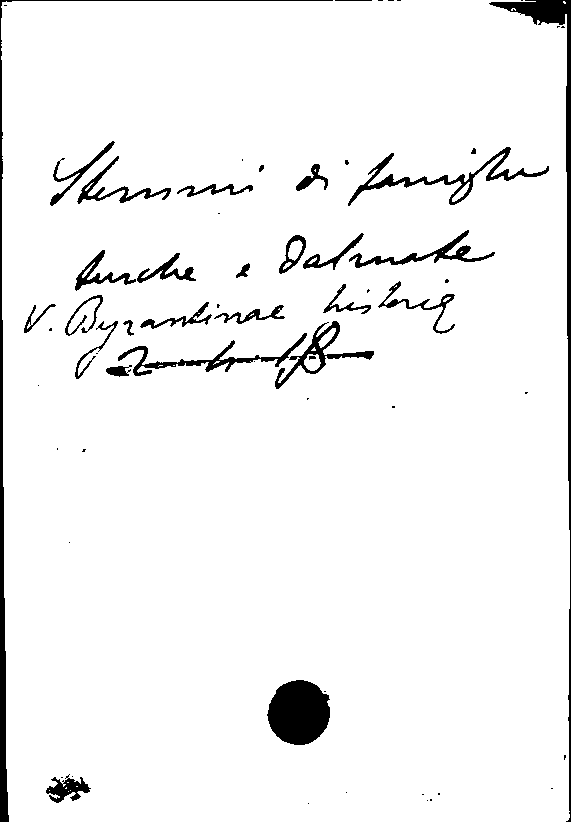 Stemmi di famiglie
turche e Dalmate
V. Byzantinae historię
2. 4. 18